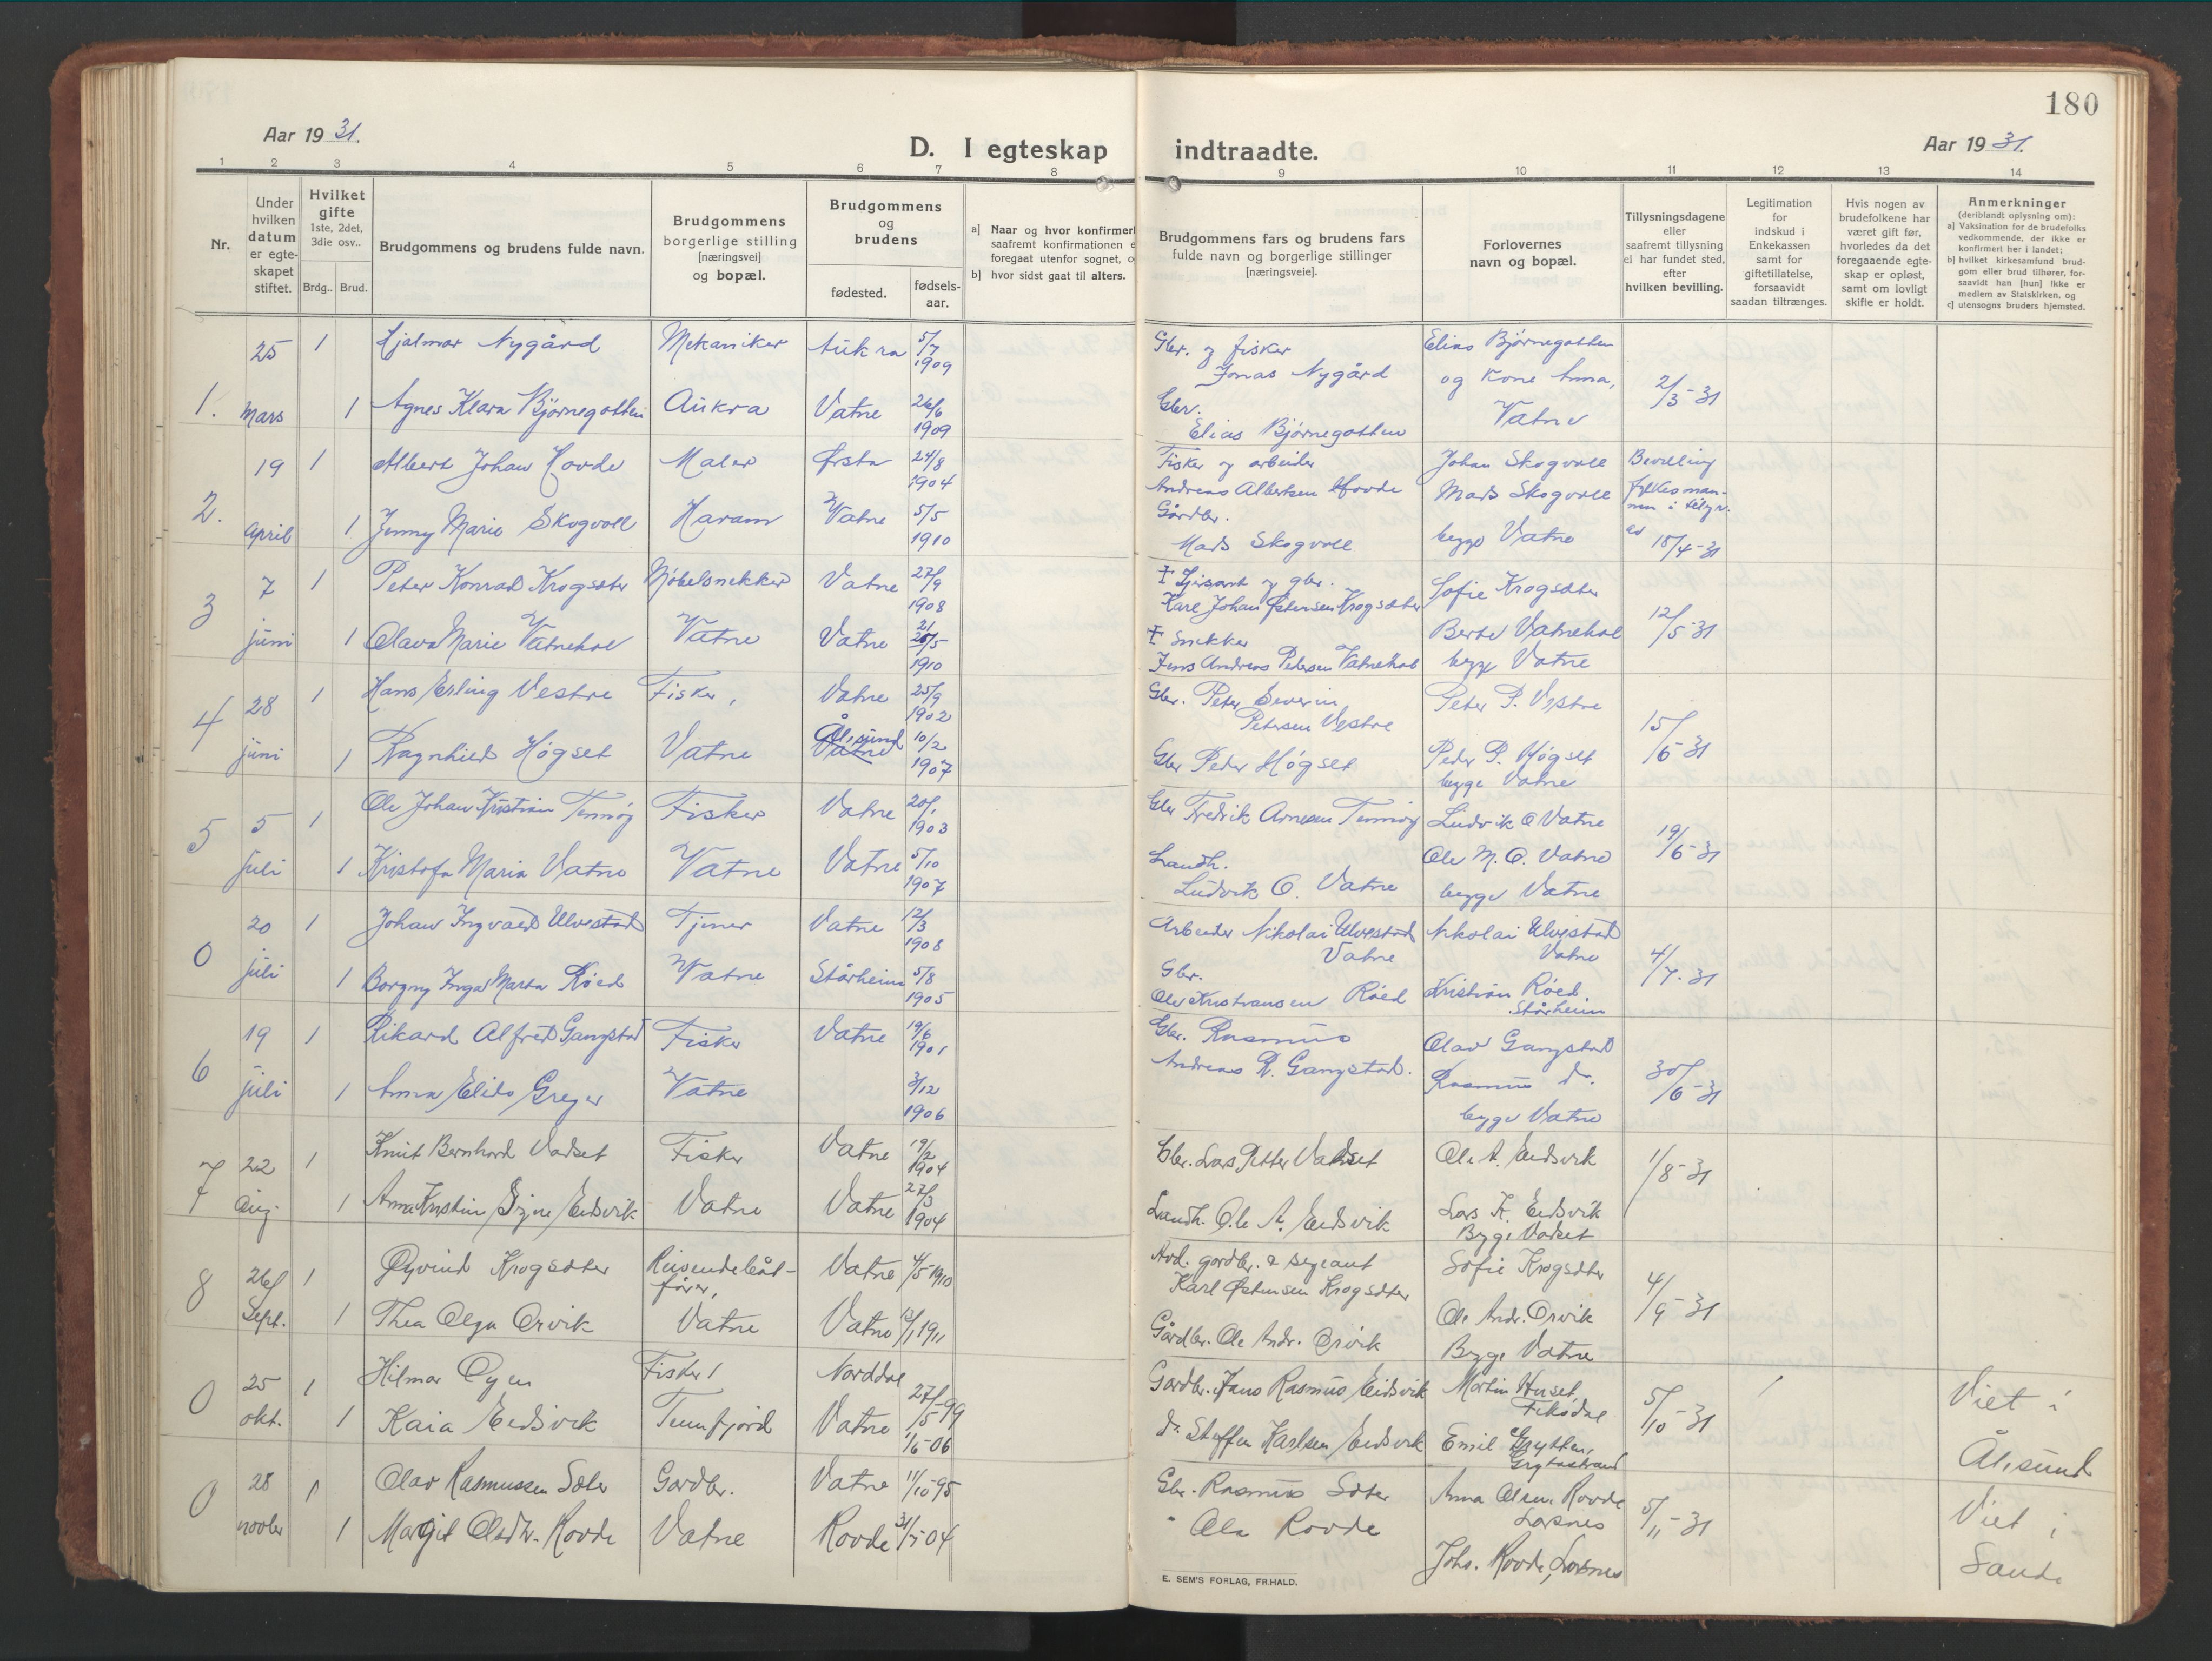 180
Aar 1931.
D. I egteskap indtraadte.
Aar 1931.
1 2 3 4 5 6 7 8 9 10 11 12 13 14
Nr.
Under hvilken datum er egteskapet stiftet.
Hvilket gifte 1ste, 2det, 3die osv..
Brdg.. Brud.
Brudgommens og brudens fulde navn.
Brudgommens borgerlige stilling [næringsvei] og bopæl.
Brudgommens og brudens
fødested.
fødsels-aar.
a] Naar og hvor konfirmert
saafremt konfirmationen e
foregaat utenfor sognet, o
b] hvor sidst gaat til alters.
Brudgommens fars og brudens fars
fulde navn og borgerlige stillinger
[næringsveie].
Forlovernes
navn og bopæl.
Tillysningsdagene
eller
saafremt tillysning
ei har fundet sted,
efter
hvilken bevilling.
Legitimation
for
indskud i
Enkekassen
samt for
giftetillatelse,
forsaavidt
saadan tiltrænges.
Hvis nogen av
brudefolkene har
været gift før,
hvorledes da det
foregaaende egte-
skap er opløst,
samt om lovligt
skifte er holdt.
Anmerkninger
(deriblandt oplysning om):
a] Vaksination for de brudefolks
vedkommende, der ikke er
konfirmert her i landet;
b] hvilket kirkesamfund brud-
gom eller brud tilhører, for-
saavidt han [hun] ikke er
medlem av Statskirken, og
c] utensogns bruders hjemsted.
25 1 Hjalmar Nygård Mekaniker Aukra 5/7 1909 Gbr. og fisker Jonas Nygård Elias Bjørnegotten
1. Mars 1 Agnes Klara Bjørnegotten Aukra Vatne 26/6 1909 Gbr. Elias Bjørnegotten og kone Anna, Vatne 2/3-31
19 1 Albert Johan Hovde Maler Ørsta 24/8 1904 Fisker og arbeider Andreas Albertsen Hovde Johan Skogvoll Bevilling fylkesman-
2. April 1 Jenny Marie Skogvoll Haram Vatne 5/5 1910 Gårdbr. Mads Skogvoll Mads Skogvoll begge Vatne 18/4-31
7 1 Peter Konrad Krogsæter Møbelsnekker Vatne 27/9 1908 Karl Johan Østensen Krogsæter Sofie Krogsæter
3 juni 1 Olava Marie Vatnehol Vatne Vatne 21/5 1910 Snekker Jens Andreas Pedersen Vatnehol Berte Vatnehol begge Vatne 12/5-31
28 1 Hans Erling Vestre Fisker, Vatne 25/9 1902 Gbr. Peter Severin Petersen Vestre Peter P. Vestre
4 juni 1 Ragnhild Høgset Vatne Ålesund Vatne 10/2 1907 Gbr Peder Høgset Peder P. Høgset begge Vatne 15/6-31
5 1 Ole Johan Kristian Tennøy Fisker Vatne 20/1 1903 Gbr Fredrik Arnesen Tennøy Ludvik O Vatne
5 juli 1 Kristofa Maria Vatne Vatne Vatne 5/10 1907 Landh. Ludvik O. Vatne Ole M. O. Vatne begge Vatne 19/6-31
20 1 Johan Ingvald Ulvestad Tjener Vatne 12/3 1908 Arbeider Nikolai Ulvestad Vatne Nikolai Ulvestad Vatne
0 juli 1 Borgny Inga Marta Røed Vatne Stårheim 5/8 1905 Gbr. Ole Kristiansen Røed Kristian Røed. Stårheim 4/7-31
19 1 Rikard Alfred Gangstad Fisker Vatne 19/6 1901 Gbr. Rasmus Andreas R. Gangstad. Olav Gangstad
6 juli 1 Anna Elida Greger Vatne 3/12 1906 Rasmus do. begge Vatne 30/6-31
22 1 Knut Bernhard Vadset Fisker Vatne 19/2 1904 Gbr. Lars Petter Vadset Ole A. Eidsvik 1/8-31
7 Aug. 1 Anna Kristine Signe Eidsvik Vatne Vatne 27/3 1904 Landh. Ole A. Eidsvik Lars K. Eidsvik Begge Vadset
26 1 Øyvind Krogsæter Reisendebåtfører, Vatne 4/5 1910 Avd. gardbr. & sersjeant Karl Østensen Krogsæter Sofie Krogsæter
8 Sept. 1 Thea Olga Orvik Vatne Vatne 1911 Gårdbr. Ole Andr. Orvik Ole Andr. Orvik Begge Vatne 4/9-31
25 1 Hilmar Oyen Fisker Norddal 27/5-99 Gardbr. Jens Rasmus Eidsvik Martin Huset, Fiksdal
0 okt. 1 Kaia Eidsvik Tennfjord Vatne 1/6-06 do Steffen Karlsen Eidsvik Emil Grytten, Grytastrand 5/10-31 Viet i Ålesund
28 1 Olav Rasmussen Sæter Gardbr. Vatne 11/10-95 Gbr. Rasmus Sæter Anna Olsen Rovde Larsnes
0 novbr 1 Margit Olsdtr. Rovde Vatne Rovde 04 " Ola Rovde Johs. Rovde, Larsnes 5/11-31 Viet i Sande
E. SEM'S FORLAG, FR.HALD.